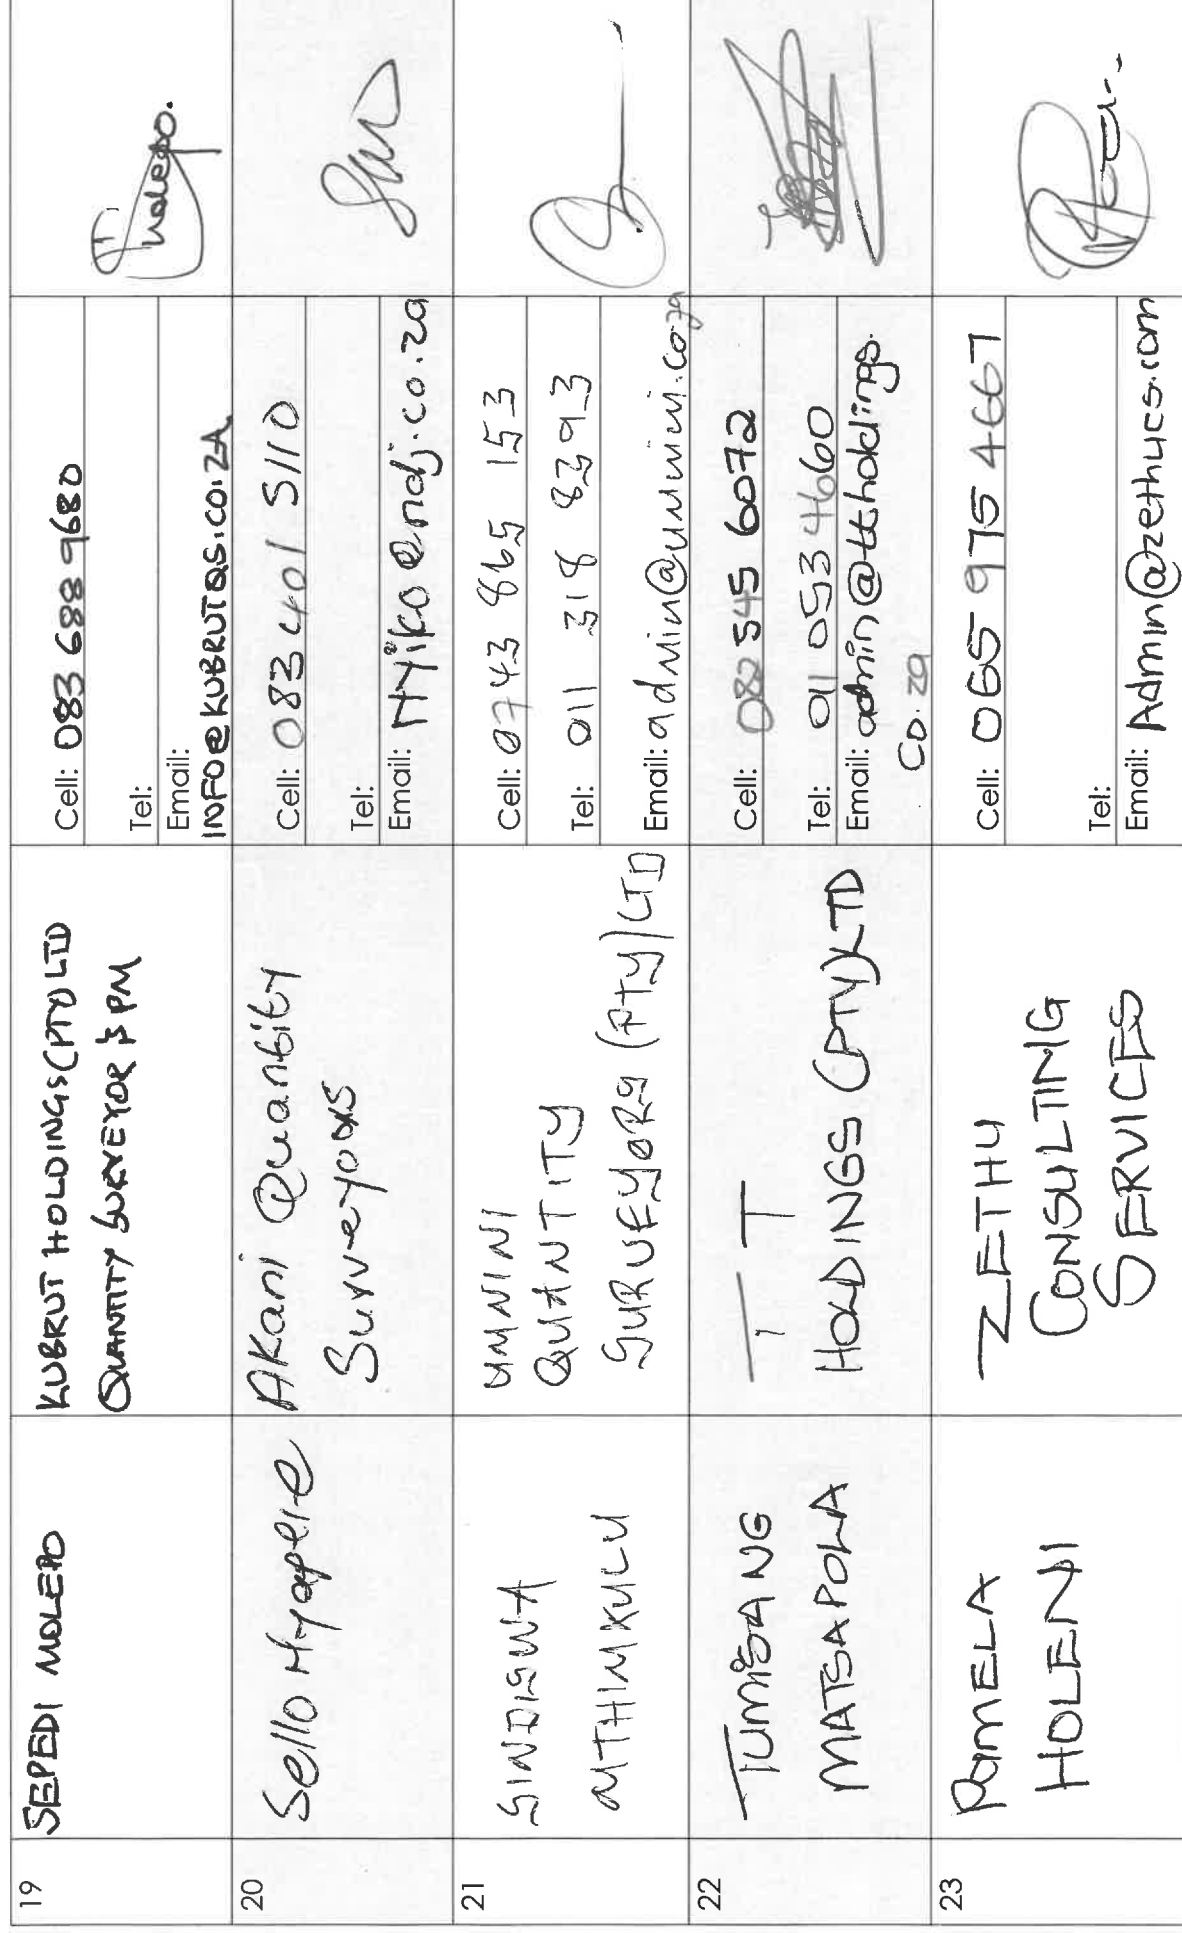 19
SEPEDI MOLEPO
KUBRUT HOLDINGS (PTY) LTD
QUANTITY SURVEYOR & PM
Cell: 083 688 9680
Tel:
Email:
INFO@KUBRUTQS.CO.ZA
Molepo.
20
Sello
Akani Quantity
Surveyors
Cell: 083 401 5110
Tel:
Email: Hyiko@ndj.co.za
21
SINDISWA
MTHIMKULU
UMNINI
QUANTITY
SURVEYORS (PTY) LTD
Cell: 0743 865 153
Tel: 011 318 8393
Email: admin@umnini.co.za
22
TUMISANG
MATSAPOLA
T T
HOLDINGS (PTY) LTD
Cell: 082 545 6072
Tel: 011 053 4660
Email: admin@ttholdings.
co.za
23
PAMELA
HOLENI
ZETHU
CONSULTING
SERVICES
Cell: 065 975 4667
Tel:
Email: Admin@zethucs.com